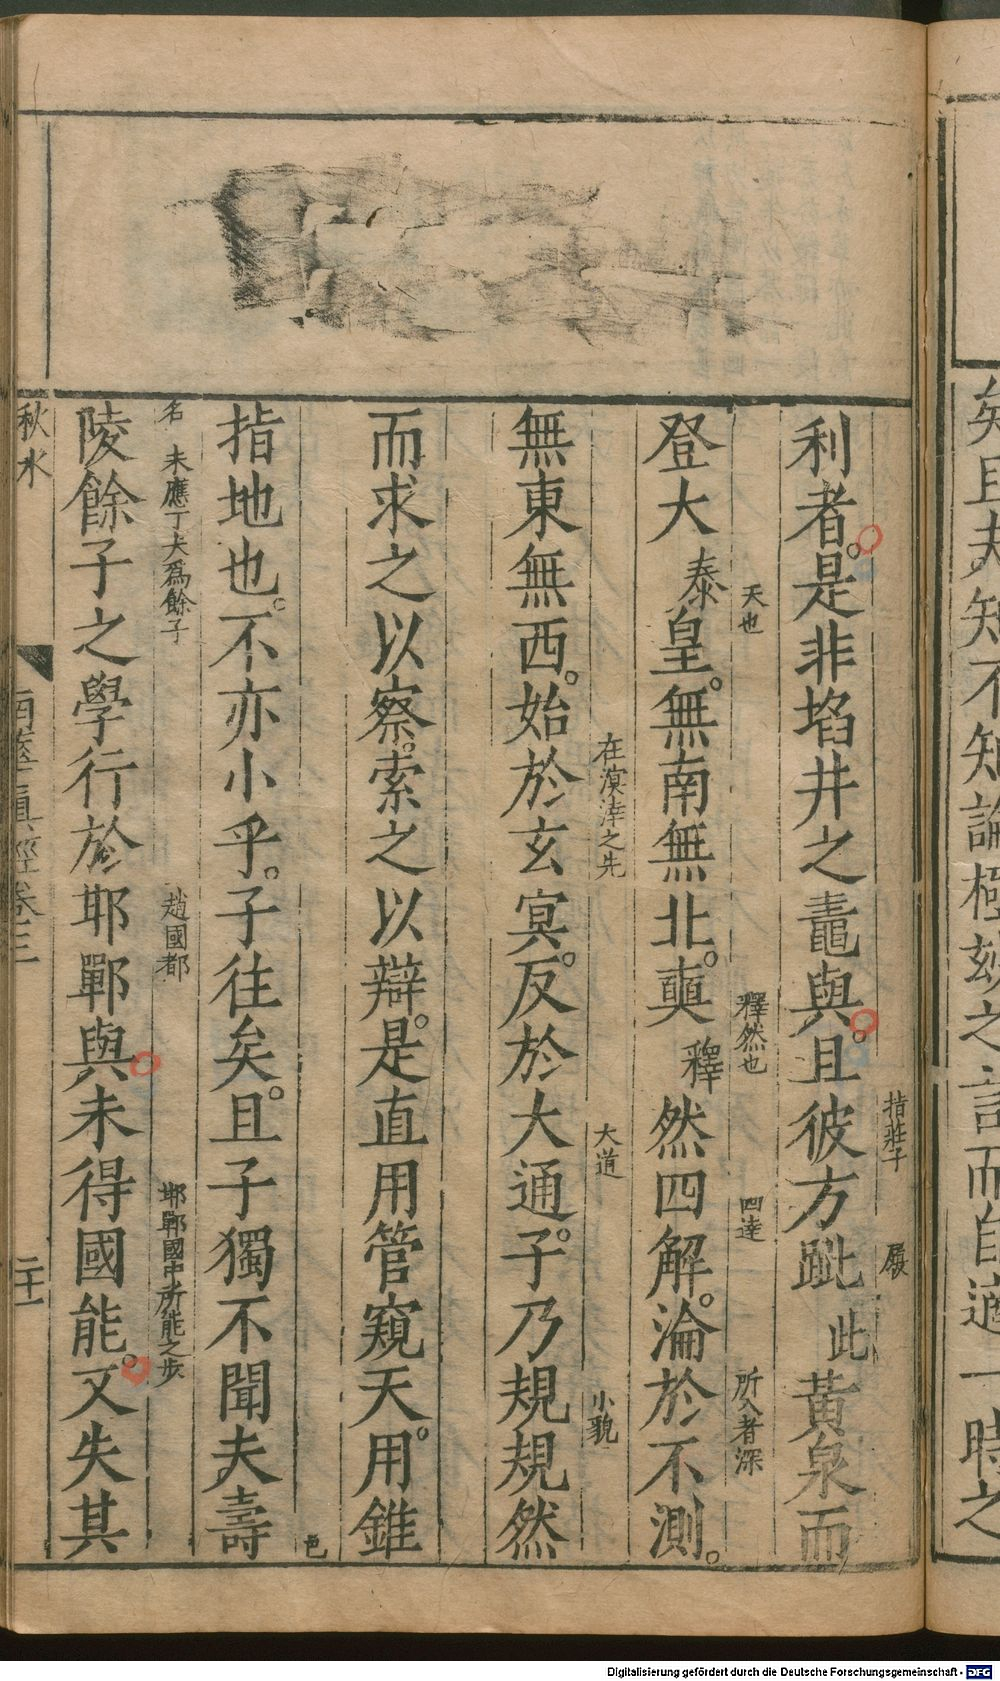 矣且夫知不知論極妙之言而自適一時之
利者。是非埳井之鼃與。且彼方跐此黃泉而
指莊子
履
登大泰皇。無南無北。奭釋然四解。淪於不測。
天也
釋然也
四達
所入者深
無東無西。始於玄冥。反於大通。子乃規規然
在溟涬之先
大道
小貌
而求之以察。索之以辯。是直用管窺天。用錐
指地也。不亦小乎。子往矣。且子獨不聞夫壽
邑
陵餘子之學行於邯鄲與未得國能。又失其
名 未應丁夫爲餘子
趙國都
邯鄲國中所能之步
秋水
南華真經卷三
二十一
Digitalisierung gefördert durch die Deutsche Forschungsgemeinschaft - DFG